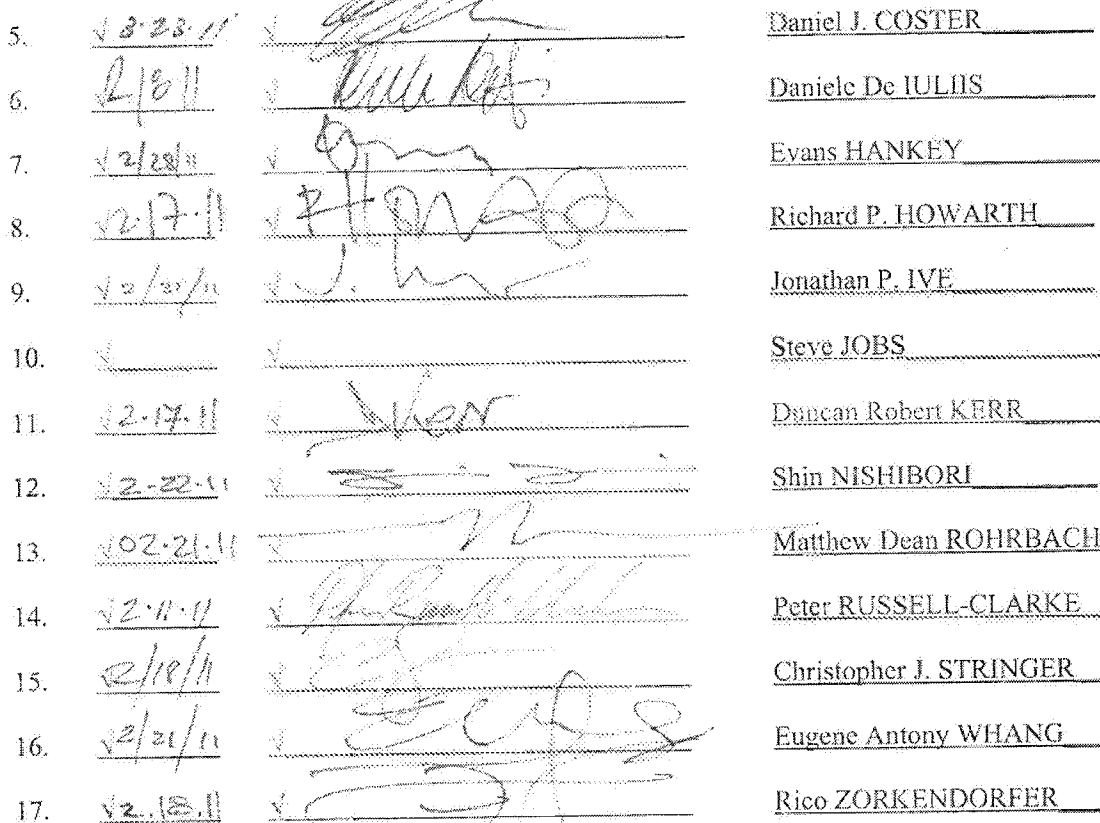 5. √ 3·23·11 √ Daniel J. COSTER
6. 2/8/11 √ Daniele De IULIIS
7. √ 2/28/11 √ Evans HANKEY
8. √ 2·17·11 √ Richard P. HOWARTH
9. √ 2/21/11 √ Jonathan P. IVE
10. √ √ Steve JOBS
11. √ 2·17·11 √ Duncan Robert KERR
12. √ 2-22-11 √ Shin NISHIBORI
13. √ 02·21·11 √ Matthew Dean ROHRBACH
14. √ 2·11·11 √ Peter RUSSELL-CLARKE
15. 2/18/11 √ Christopher J. STRINGER
16. √ 2/21/11 √ Eugene Antony WHANG
17. √ 2.18.11 √ Rico ZORKENDORFER